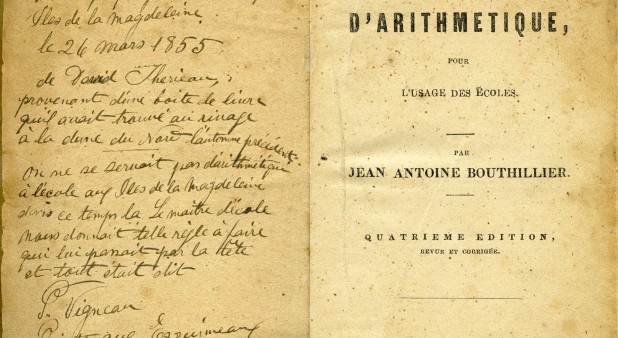 Iles de la Magdeleine
le 26 mars 1855
de David Therieau,
provenant d'une boite de livre
qu'il avait trouvé au rivage
à la dune du Nord l'automne précédent.
on ne se servait pas d'arithmétique
à l'école aux Iles de la Magdeleine
dans ce temps la Le maître d'école
nous donnait telle règle à faire
qui lui passait par la tête
et tout était dit
P. Vigneau
Esquimeaux
D'ARITHMETIQUE,
POUR
L'USAGE DES ÉCOLES.
PAR
JEAN ANTOINE BOUTHILLIER.
QUATRIEME EDITION,
REVUE ET CORRIGÉE.